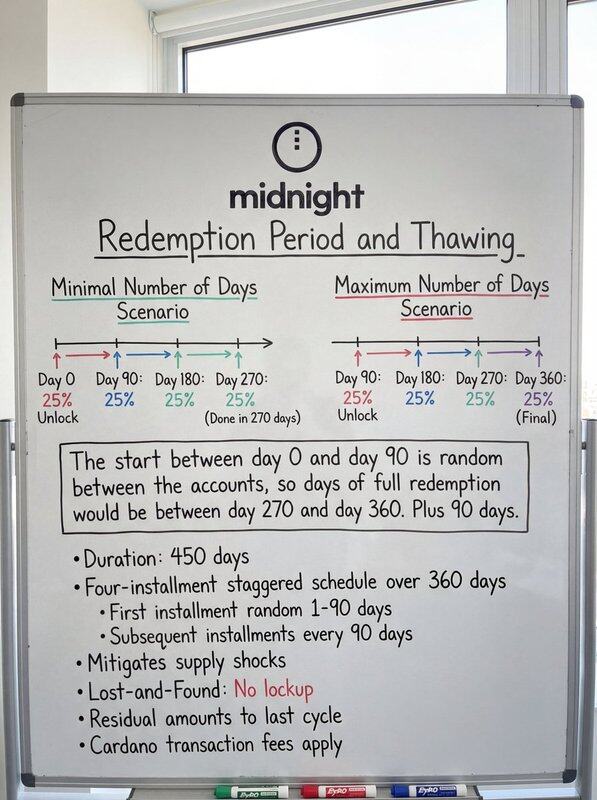 midnight
Redemption Period and Thawing
Minimal Number of Days
Scenario
Day 0
25%
Unlock
Day 90:
25%
Day 180:
25%
Day 270:
25%
(Done in 270 days)
Maximum Number of Days
Scenario
Day 90:
25%
Unlock
Day 180:
25%
Day 270:
25%
Day 360:
25%
(Final)
The start between day 0 and day 90 is random
between the accounts, so days of full redemption
would be between day 270 and day 360. Plus 90 days.
• Duration: 450 days
• Four-installment staggered schedule over 360 days
• First installment random 1-90 days
• Subsequent installments every 90 days
• Mitigates supply shocks
• Lost-and-Found: No lockup
• Residual amounts to last cycle
• Cardano transaction fees apply